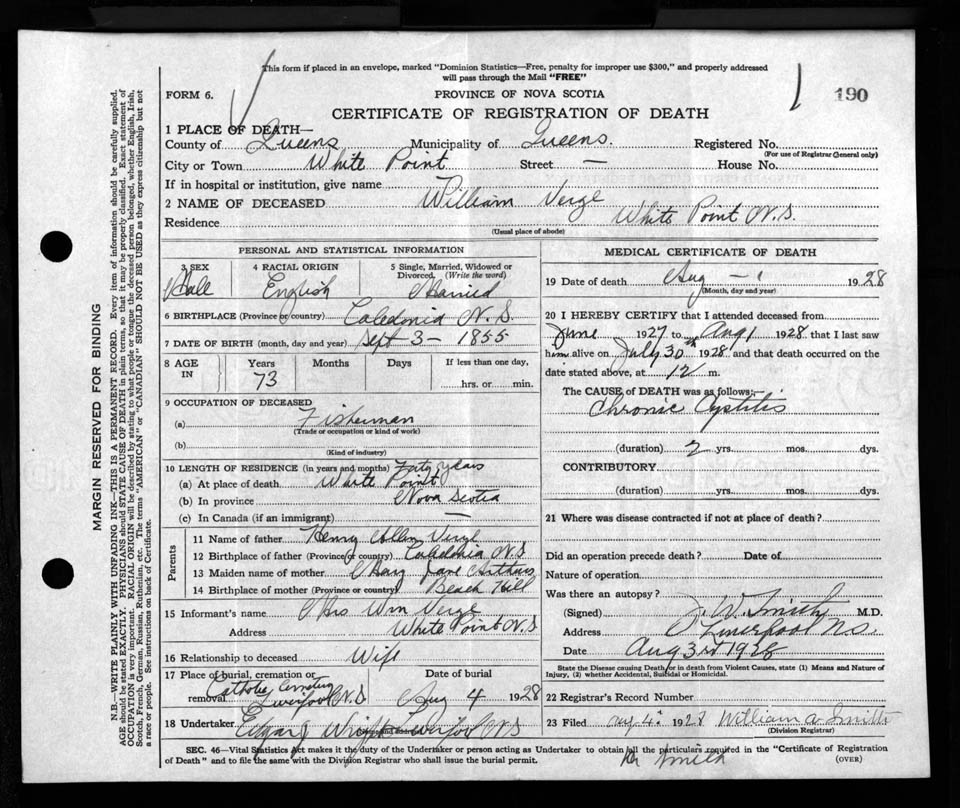 This form if placed in an envelope, marked "Dominion Statistics—Free, penalty for improper use $300," and properly addressed
will pass through the Mail "FREE"
FORM 6.
PROVINCE OF NOVA SCOTIA
190
CERTIFICATE OF REGISTRATION OF DEATH
1 PLACE OF DEATH—
County of Queens Municipality of Queens. Registered No.
(For use of Registrar General only)
City or Town White Point Street — House No.
If in hospital or institution, give name
2 NAME OF DECEASED William Verge
Residence White Point N.S.
(Usual place of abode)
PERSONAL AND STATISTICAL INFORMATION
3 SEX 4 RACIAL ORIGIN 5 Single, Married, Widowed or Divorced. (Write the word)
Male English Married
6 BIRTHPLACE (Province or country) Caledonia N.S.
7 DATE OF BIRTH (month, day and year) Sept 3 - 1855
8 AGE IN Years Months Days If less than one day,
73 hrs. or min.
9 OCCUPATION OF DECEASED
(a) Fisherman
(Trade or occupation or kind of work)
(b)
(Kind of industry)
10 LENGTH OF RESIDENCE (in years and months) Forty years
(a) At place of death White Point
(b) In province Nova Scotia
(c) In Canada (if an immigrant) —
Parents
11 Name of father Henry Allen Verge
12 Birthplace of father (Province or country) Caledonia N S
13 Maiden name of mother Mary Jane Arthurs
14 Birthplace of mother (Province or country) Beach Hill
15 Informant's name Mrs Wm Verge
Address White Point N.S
16 Relationship to deceased Wife
17 Place of burial, cremation or removal Date of burial
Catholic Cemetery Liverpool N.S Aug 4 1928
18 Undertaker Edgar Wright N S
MEDICAL CERTIFICATE OF DEATH
19 Date of death Aug - 1 1928
(Month, day and year)
20 I HEREBY CERTIFY that I attended deceased from
June 1927 to Aug 1 1928 that I last saw
him alive on July 30th 1928 and that death occurred on the
date stated above, at 12 m.
The CAUSE OF DEATH was as follows:
Chronic Cystitis
(duration) 2 yrs. mos. dys.
CONTRIBUTORY
(duration) yrs. mos. dys.
21 Where was disease contracted if not at place of death?
Did an operation precede death? Date of
Nature of operation
Was there an autopsy?
(Signed) J. W. Smith M.D.
Address Liverpool N.S.
Date Aug 3rd 1928
State the Disease causing Death, or in death from Violent Causes, state (1) Means and Nature of
Injury, (2) whether Accidental, Suicidal or Homicidal.
22 Registrar's Record Number
23 Filed Aug 4 1928 William A Smith
(Division Registrar)
SEC. 46—Vital Statistics Act makes it the duty of the Undertaker or person acting as Undertaker to obtain all the particulars required in the "Certificate of Registration
of Death" and to file the same with the Division Registrar who shall issue the burial permit.
(OVER)
Dr Smith
MARGIN RESERVED FOR BINDING
N.B.—WRITE PLAINLY WITH UNFADING INK—THIS IS A PERMANENT RECORD. Every item of information should be carefully supplied.
AGE should be stated EXACTLY. PHYSICIANS should STATE CAUSE OF DEATH in plain terms, so that it may be properly classified. Exact statement of
OCCUPATION is very important. RACIAL ORIGIN will be described by stating to what people or tongue the deceased person belonged, whether English, Irish,
Scotch, French, German, Russian, Ruthenian, etc. The terms "AMERICAN" or "CANADIAN" SHOULD NOT BE USED as they express citizenship but not
a race or people. See instructions on back of Certificate.